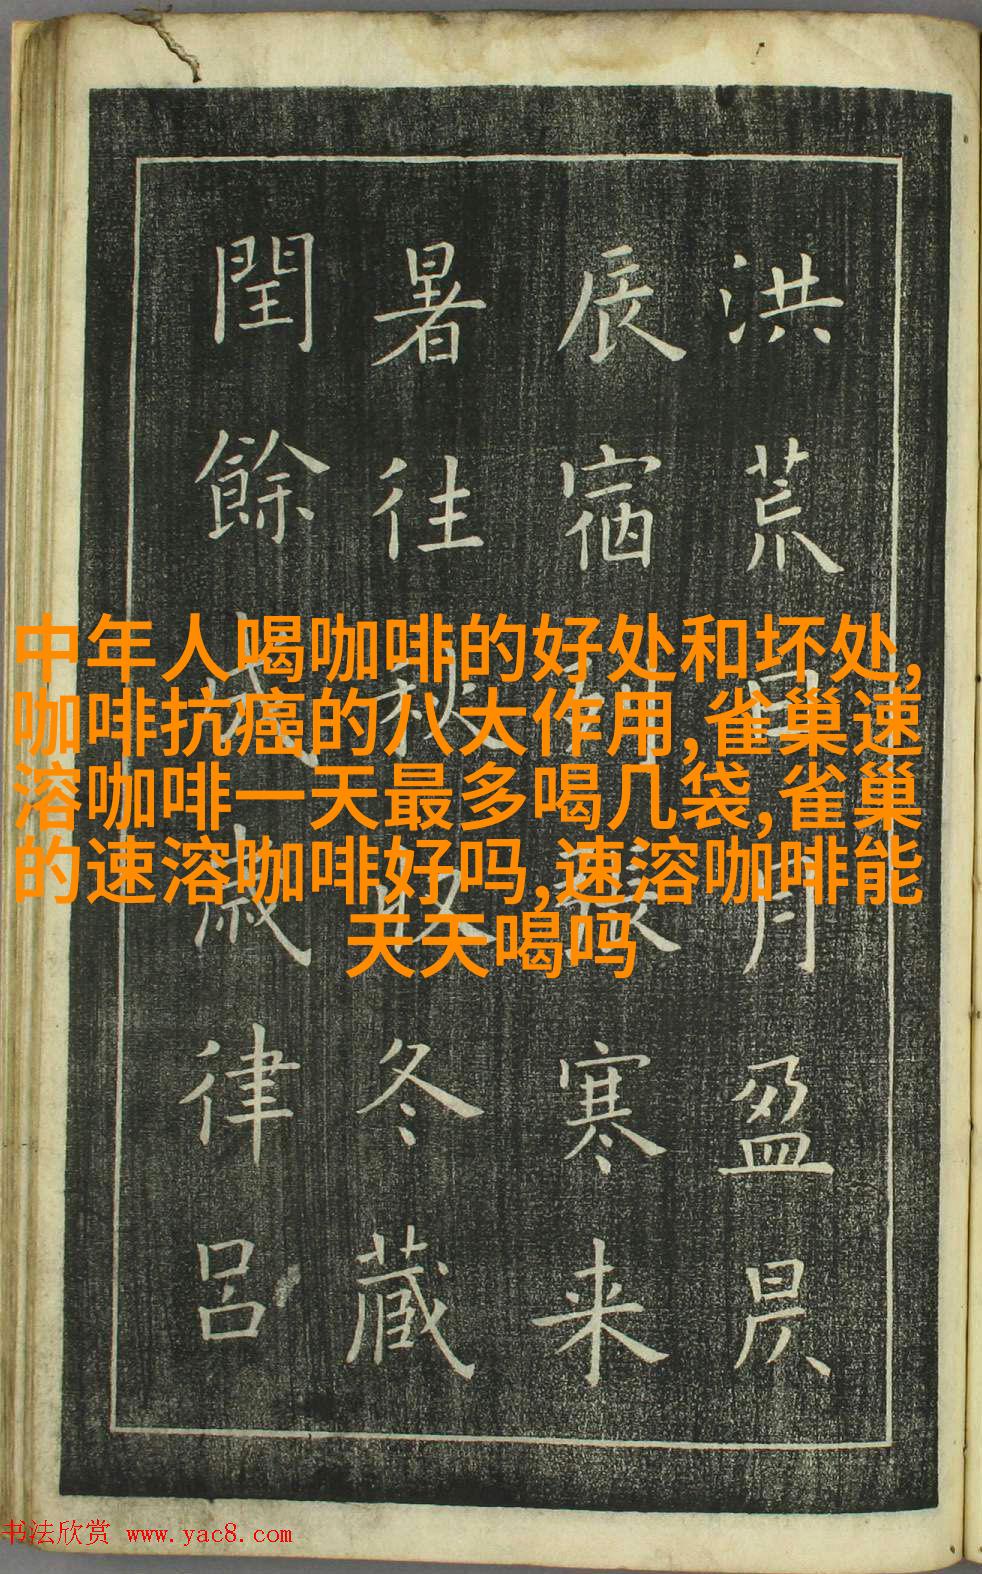 洪荒日月盈昃
辰宿列張寒来
暑往秋收冬藏
閏餘成歲律呂
中年人喝咖啡的好处和坏处,
咖啡抗癌的八大作用,雀巢速
溶咖啡一天最多喝几袋,雀巢
的速溶咖啡好吗,速溶咖啡能
天天喝吗
书法欣赏 www.yac8.com